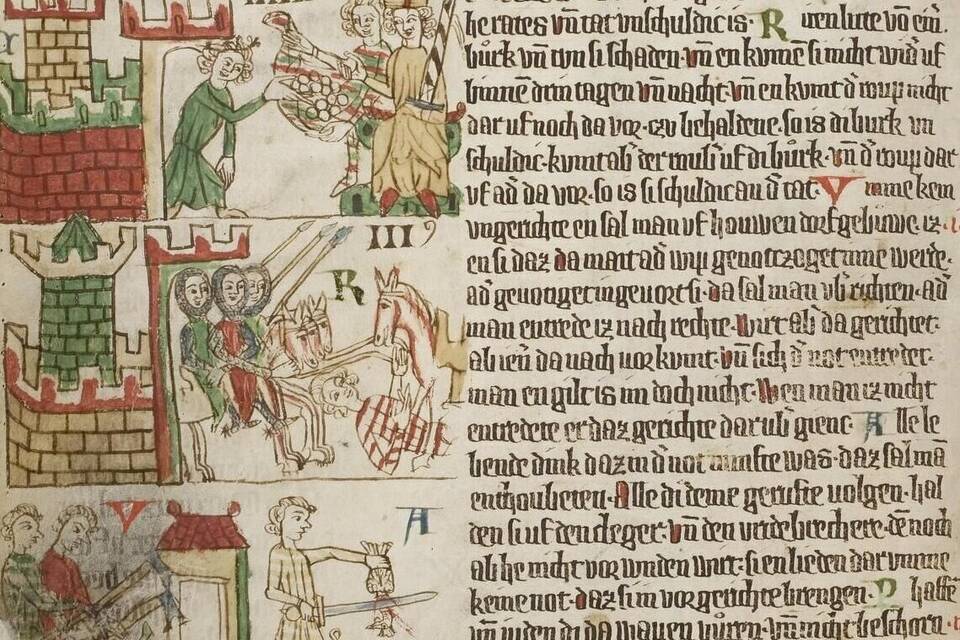 IIII
III⁹
R
V
A
he rates vn̄ tat vnschuldic is. Ritenlute vō ein̄.
burk vn̄ tun si schaden. vn̄ en kvmē si nicht wid̄ uf
binnē drin tagen vn̄ nacht. vn̄ en kvmt d̄ roup nicht
dar uf noch da vor. czu behaldene. so is di burk vn
schuldic. kvmt ab̄ der uf di burk. vn̄ d̄ roup dar
vf ad̄ da vor. so is si schuldic an d̄ tat. Vmme kein
vngerichte en sal man vf houwen dorfgebuwe. iz
en si daz da mait ad̄ wip genotczoget inne werde.
ad̄ genotzoget in gevort si. da sal man ub̄ richten. ad̄
man entrede iz nach rechte. wirt ab̄ da gerichtet.
ab ien̄ da nach vorkvmt. vn̄ sich d̄ not entredet.
man engilt is im doch nicht. Wen man iz nicht
entredete er daz gerichte dar ub̄ gienc. Alle le
bende dink daz in d̄ not nunfte was. daz sal mā
enthoubeten. Alle di deme gerufte volgen. hal
den si uf den cleger. vn̄ den vredebrechere. dē noch
ab he nicht vorwnden wirt. si en lieden dar vmme
keine not. daz si in vor gerichte brengen. Phaffē
vn̄ iuden di da wapen vuren. vn̄ nicht beschorn